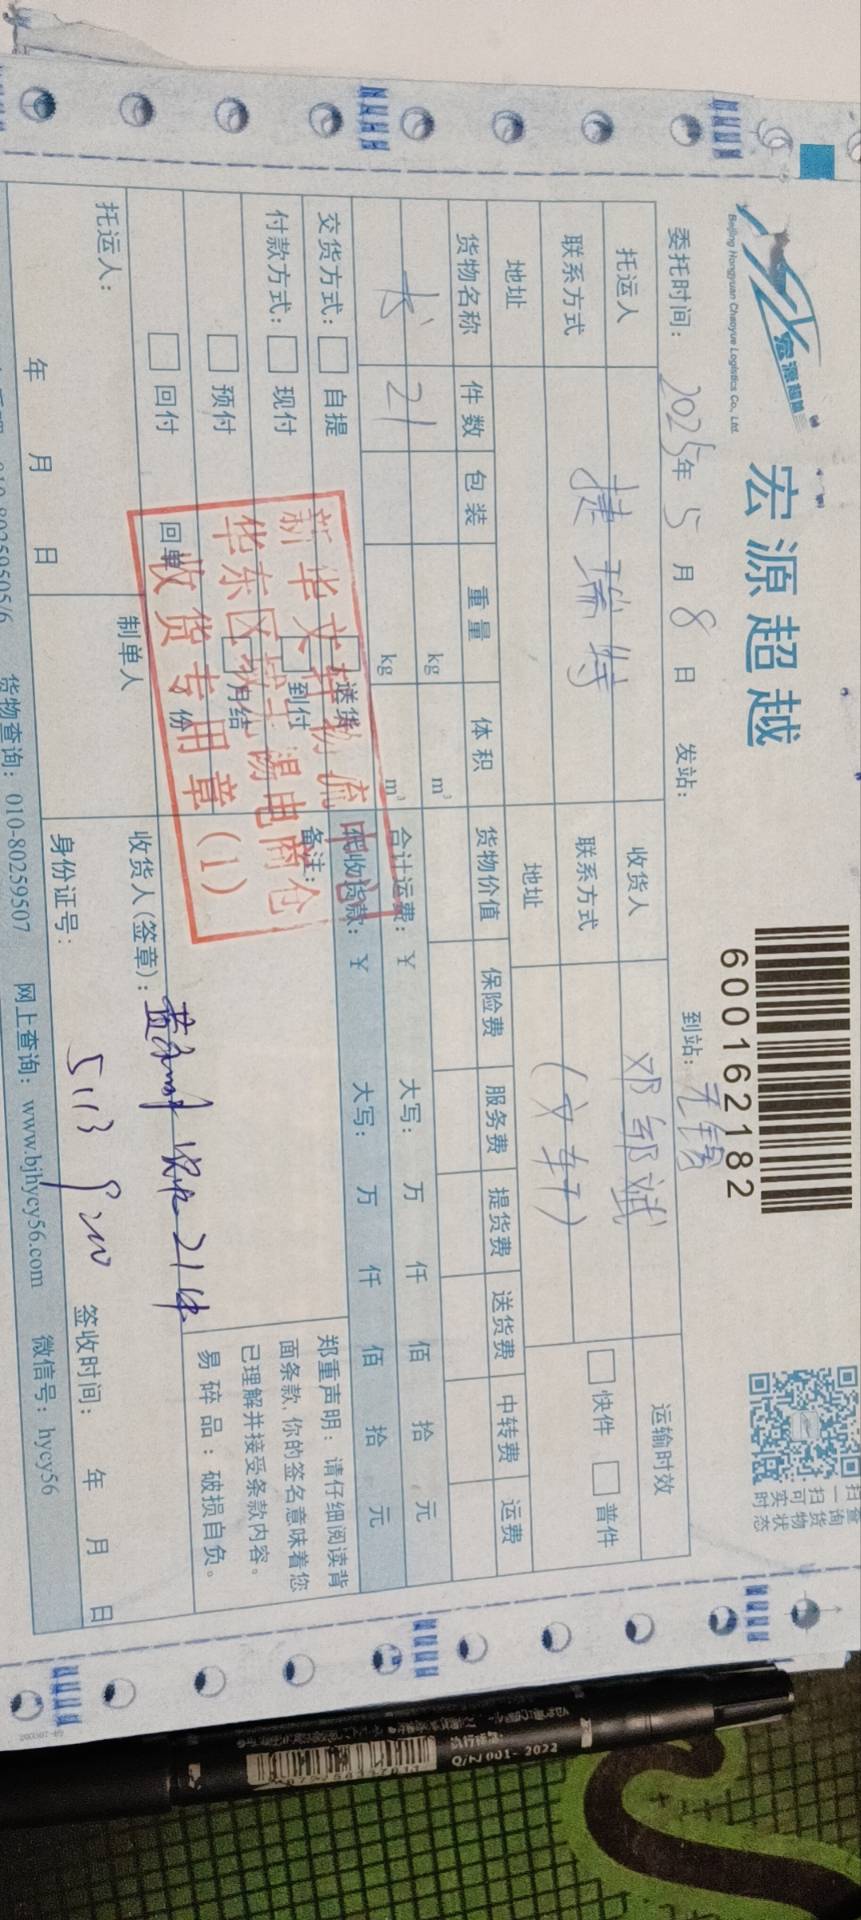 宏源超越
宏源超越
Beijing Hongyuan Chaoyue Logistics Co., Ltd.
6001621 82
扫一扫
查询货物
可实时状态
委托时间：2025年5月8日 发站： 到站：无锡
托运人 捷瑞特 收货人 邓郅斌 运输时效
联系方式 联系方式 (文轩) 快件 普件
地址 地址
货物名称 件数 包装 重量 体积 货物价值 保险费 服务费 提货费 送货费 中转费 运费
kg m³
书 21 kg m³ 合计运费：￥ 大写： 万 仟 佰 拾 元
代收货款：￥ 大写： 万 仟 佰 拾 元
交货方式： 自提 送货 备注：
付款方式： 现付 到付
预付 月结
回付 回单 份
新华文轩物流中心
华东区无锡电商仓
收货专用章(1)
郑重声明：请仔细阅读背
面条款,你的签名意味着您
已理解并接受条款内容。
易碎品：破损自负。
托运人： 制单人 收货人(签章)： 21件
年 月 日 身份证号： 5113 签收时间： 年 月 日
货物查询：010-80259507 网上查询：www.bjhycy56.com 微信号：hycy56
Q/NJ 001-2022